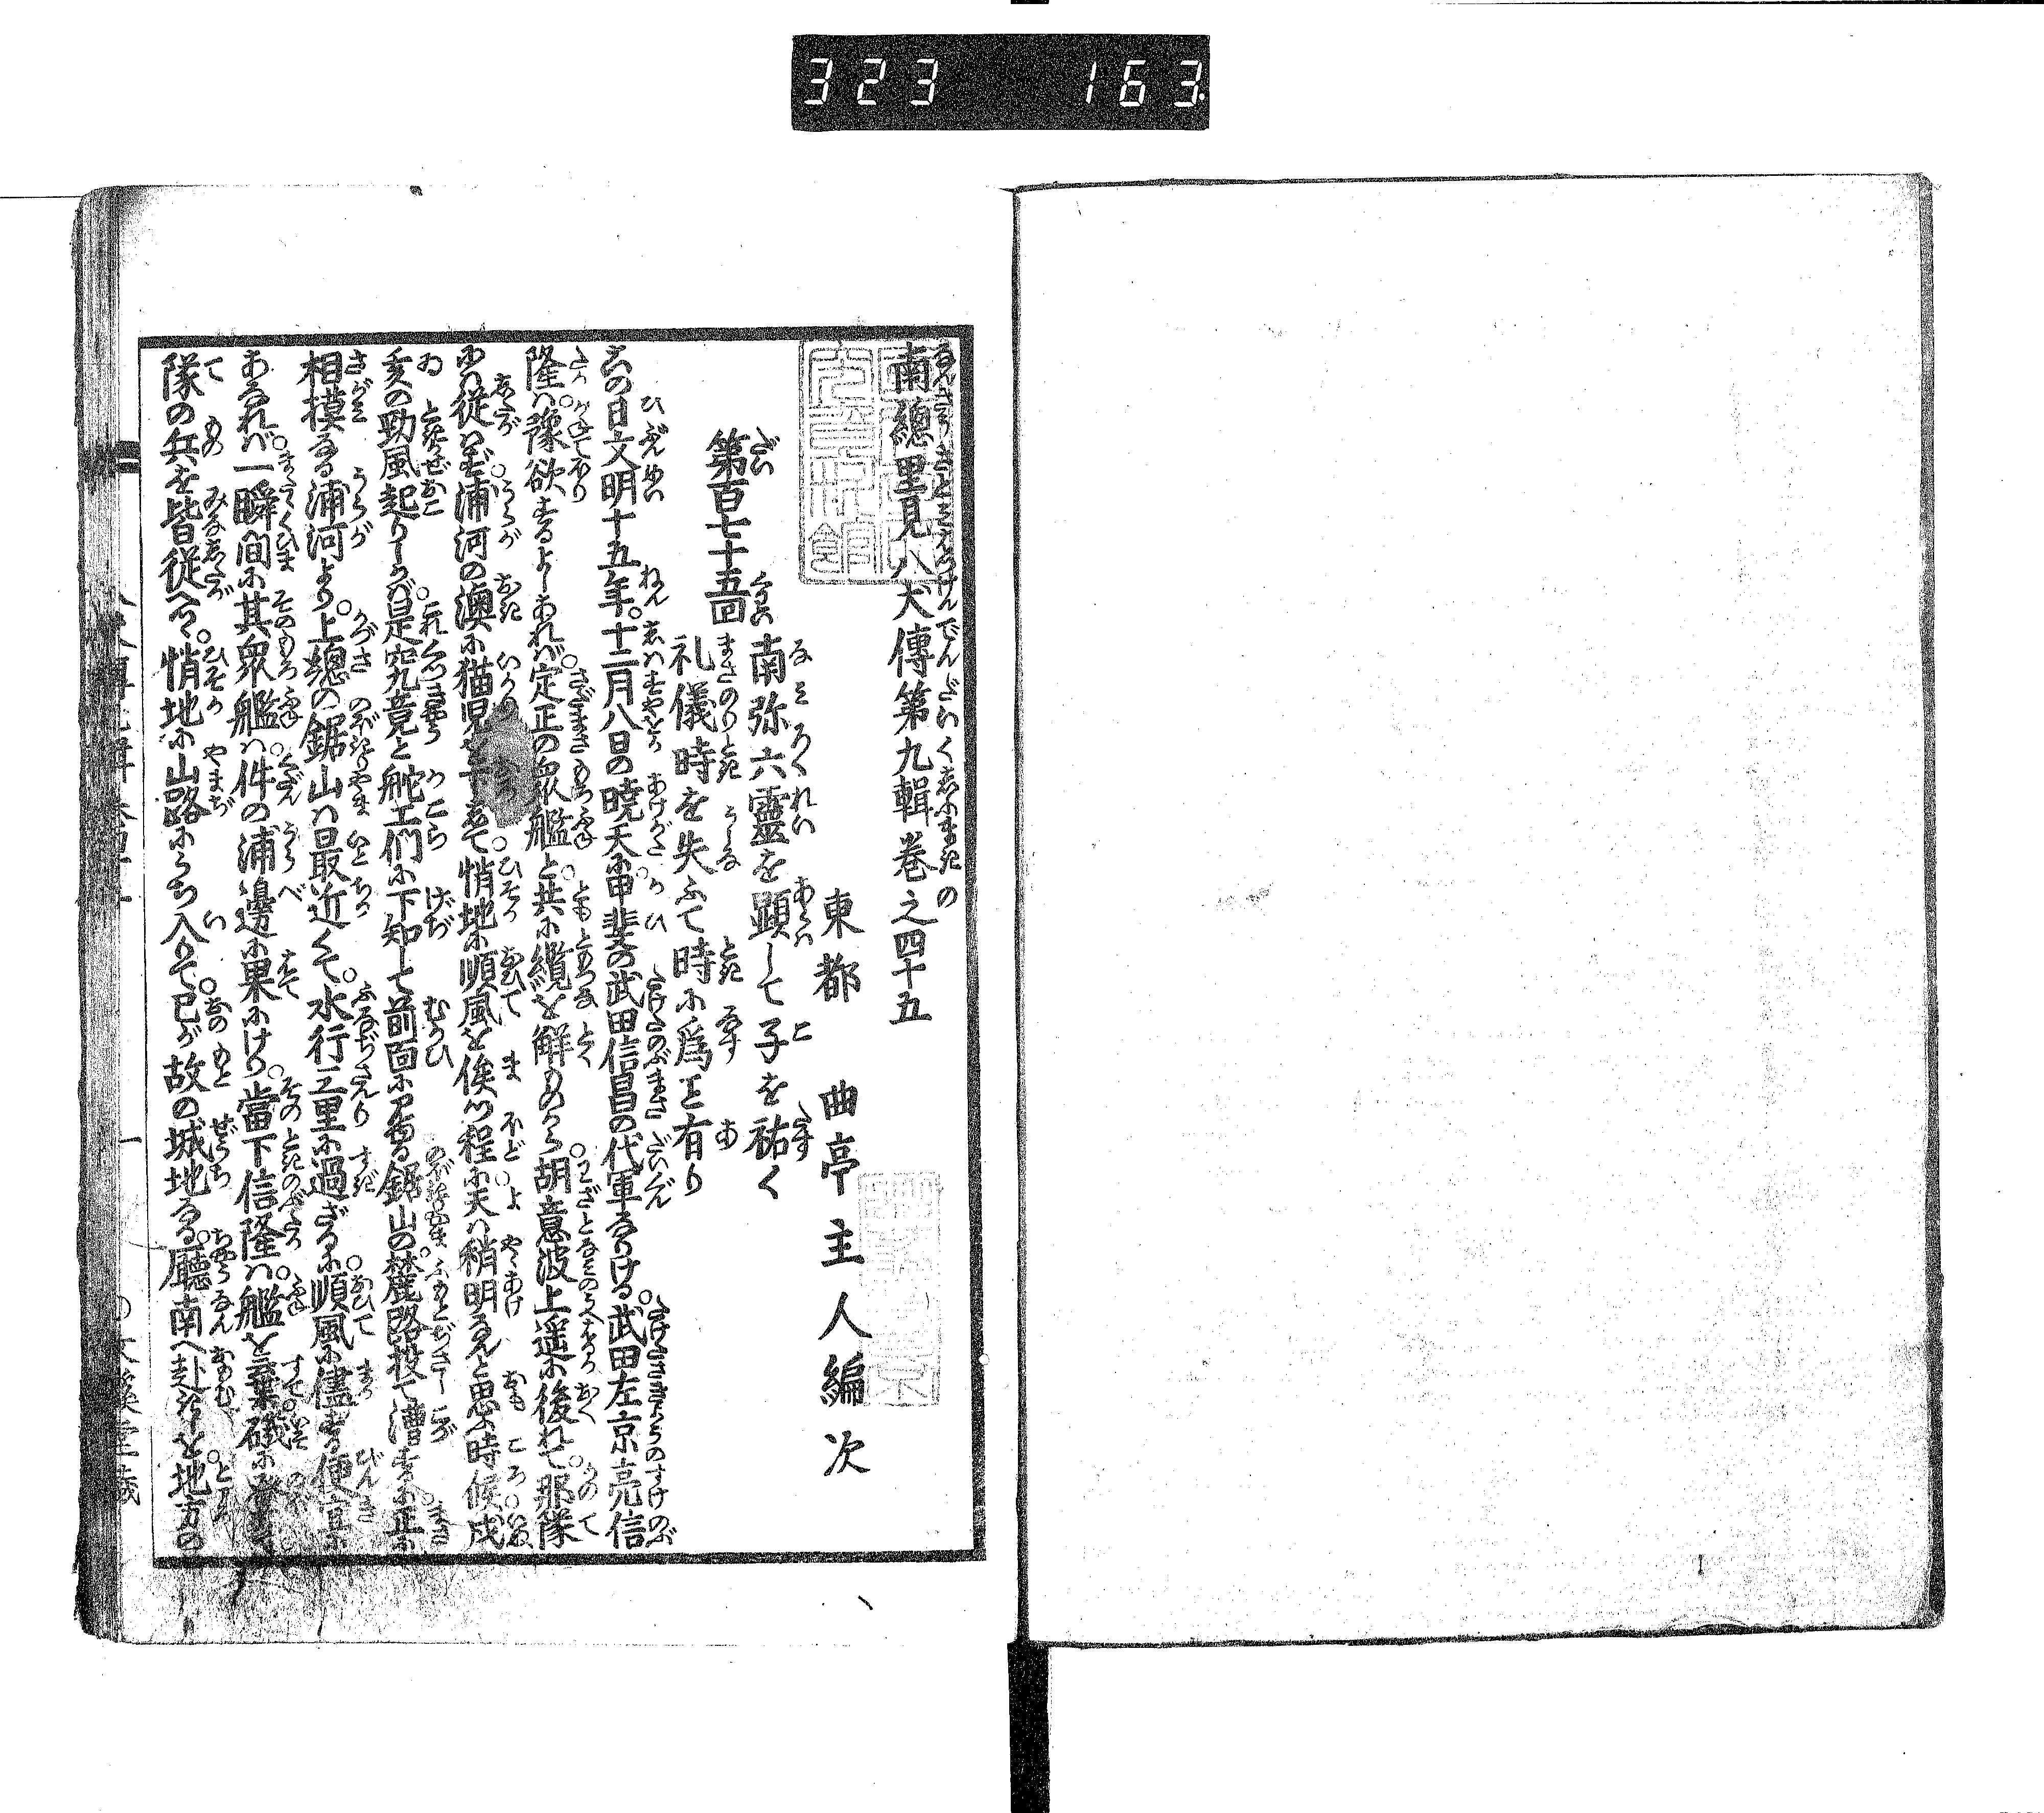 323 163
南總里見八犬傳第九輯巻之四十五
東都 曲亭主人編次
第百七十五回
南弥六靈を顕して子を祐く
礼儀時を失ふて時に爲こと有り
其の日文明十五年。十二月八日の暁天に。甲斐の武田信昌の代軍なりける。武田左京亮信
隆は。豫欲するよしあれば。定正の衆艦と。共に纜を觧ものから。胡意波上遥に後れて。那隊
には従はず。浦河の澳に猫児を下して。悄地に順風を俟つ程に。天は稍明なんと思ふ時候。戌
亥の勁風起りしかば。是究竟と舵工們に下知して。前面に見る鋸山の。麓路投て漕するに。正に
相摸なる浦河より。上總の鋸山は最近くて。水行三里に過ざるに。順風に儘する便宜に
あなれば。一瞬間に其衆艦は。件の浦邊に果にけり。當下信隆は。艦を棄。礒に登りて
隊の兵を皆従へつゝ。悄地に山路にうち入りて。己が故の城地なる。廳南へ赴くを。地方の